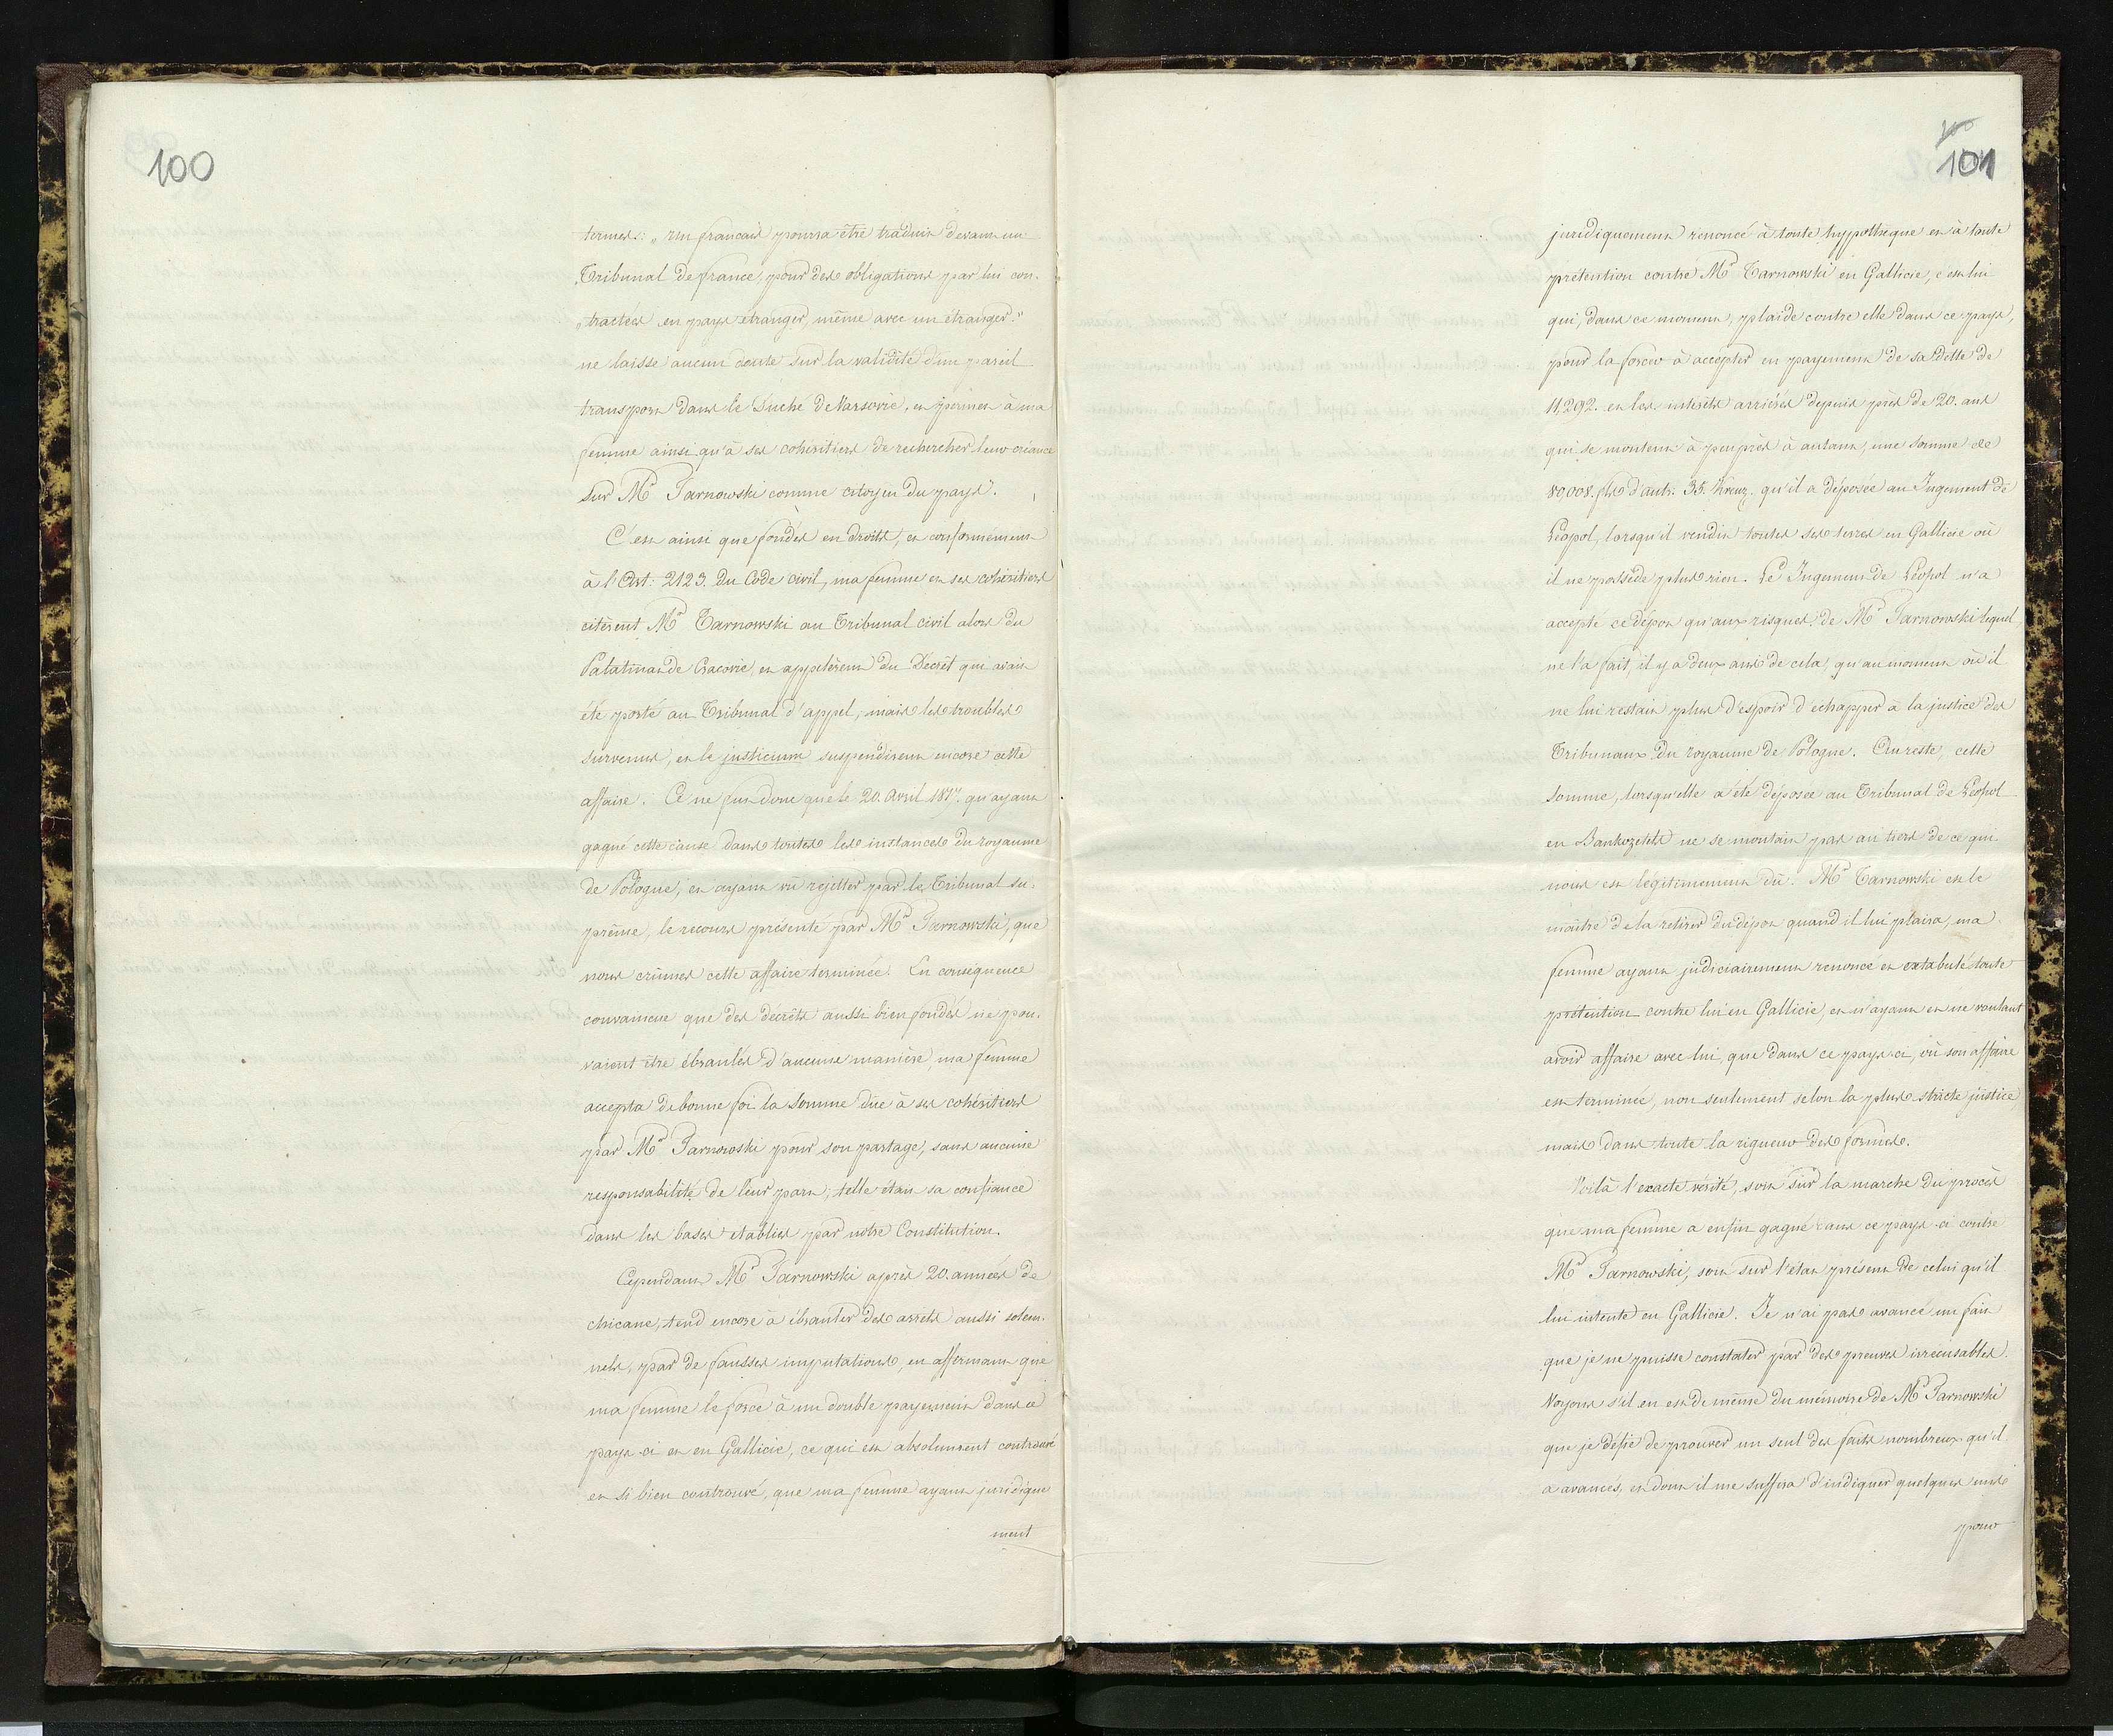 100
termes: „ Un francais pourra être traduit devant un
„Tribunal de france, pour des obligations par lui con-
„tractées en pays étranger, même avec un étranger."
ne laisse aucun doute sur la validité d'un pareil
transport dans le Duché de Varsovie, et permet à ma
femme ainsi qu'à ses cohéritiers de rechercher leur créance
sur Mr Tarnowski comme citoyen du pays.
C'est ainsi que fondés en droits, et conformément
à l'Art: 2123. du Code civil, ma femme et ses cohéritiers
citèrent Mr Tarnowski au Tribunal civil alors du
Palatinat de Cracovie, et appelèrent du Décrêt qui avait
été porté au Tribunal d'appel, mais les troubles
survenus, et le justicium suspendirent encore cette
affaire. Ce ne fut donc que le 20. Avril 1817. qu'ayant
gagné cette cause dans toutes les instances du royaume
de Pologne, et ayant vû rejetter par le Tribunal su-
prême, le recours présenté par Mr Tarnowski, que
nous crûmes cette affaire terminée. En conséquence
convaincue que des décrêts aussi bien fondés ne pou-
vaient être ébranlés d'aucune manière, ma femme
accepta de bonne foi la somme dûe à ses cohéritiers
par Mr Tarnowski pour son partage, sans aucune
responsabilité de leur part; telle était sa confiance
dans les bases établies par notre Constitution.
Cependant Mr Tarnowski après 20. années de
chicane, tend encore à ébranler des arrets aussi solem-
nels, par de fausses imputations, en affirmant que
ma femme le force à un double payement dans ce
pays-ci et en Gallicie, ce qui est absolument controuvé
et si bien controuvé, que ma femme ayant juridique
ment
100
101
juridiquement renoncé à toute hypothèque et à toute
prétention contre Mr Tarnowski en Gallicie, c'est lui
qui, dans ce moment, plaide contre elle dans ce pays,
pour la forcer à accepter en payement de sa dette de
11,292. et les intérêts arriérés depuis près de 20. ans
qui se montent à peu près à autant, une somme de
80,008. fls d'autr: 35. Kreuz. qu'il a déposée au Jugement de
Léopol, lorsqu'il vendit toutes ses terres en Gallicie où
il ne possède plus rien. Le Jugement de Léopol n'a
accepté ce dépot qu'aux risques de Mr Tarnowski lequel,
ne l'a fait, il y a deux ans de cela, qu'au moment où il
ne lui restait plus d'espoir d'echapper à la justice des
Tribunaux du royaume de Pologne. Au reste, cette
somme, lorsqu'elle a été déposée au Tribunal de Léopol
en Bankozettels ne se montait pas au tiers de ce qui
nous est légitimement dû. Mr Tarnowski est le
maître de la retirer du dépot quand il lui plaira, ma
femme ayant judiciairement renoncé et extabulé toute
prétention contre lui en Gallicie, et n'ayant et ne voulant
avoir affaire avec lui, que dans ce pays-ci, où son affaire
est terminée, non seulement selon la plus stricte justice,
mais dans toute la rigueur des formes.
Voilà l'exacte vérité, soit sur la marche du procès
que ma femme a enfin gagné dans ce pays-ci contre
Mr Tarnowski, soit sur l'état présent de celui qu'il
lui intente en Gallicie. Je n'ai pas avancé un fait
que je ne puisse constater par des preuves irrécusables.
Voyons s'il en est de même du mémoire de Mr Tarnowski
que je défie de prouver un seul des faits nombreux qu'il
a avancés, et dont il me suffira d'indiquer quelques uns
pour